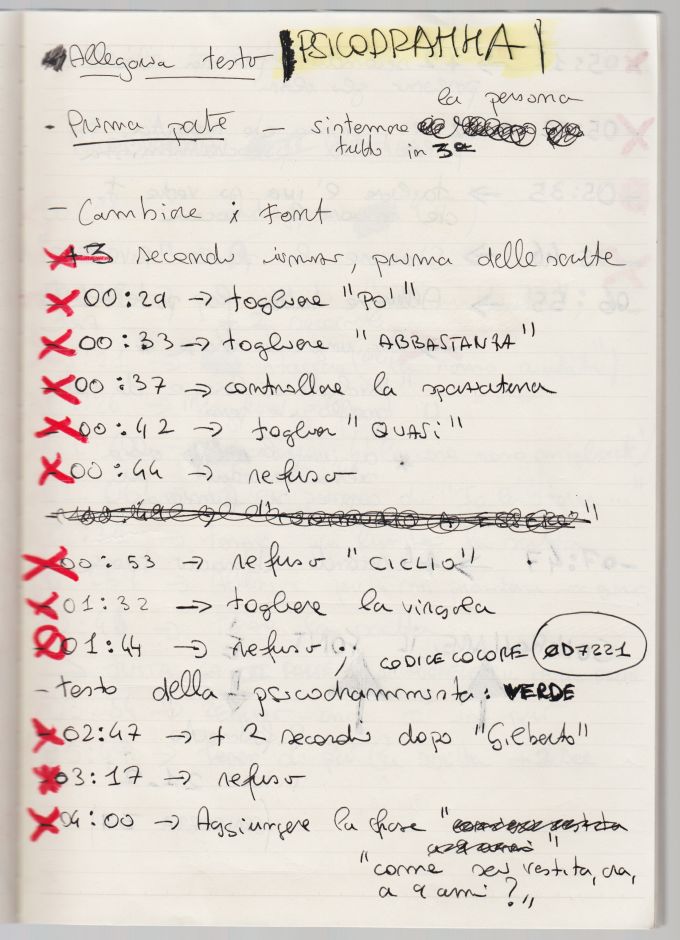 Allegoria testo PSICODRAMMA
la persona
- Prima parte - sistemare
tutto in 3ª
- Cambiare i Font
- +3 secondi , prima delle scritte
- 00:29 → togliere "PO'"
- 00:33 → togliere "ABBASTANZA"
- 00:37 → controllare la spaziatura
- 00:42 → togliere "QUASI"
- 00:44 → refuso
- 00:53 → refuso "CICLIO"
- 01:32 → togliere la virgola
- 01:44 → refuso ;
CODICE COLORE 0D7221
- testo della psicodrammista: VERDE
- 02:47 → + 2 secondi dopo "Gilberto"
- 03:17 → refuso
- 04:00 → Aggiungere la frase "
"come sei vestita, ora,
a 9 anni?"